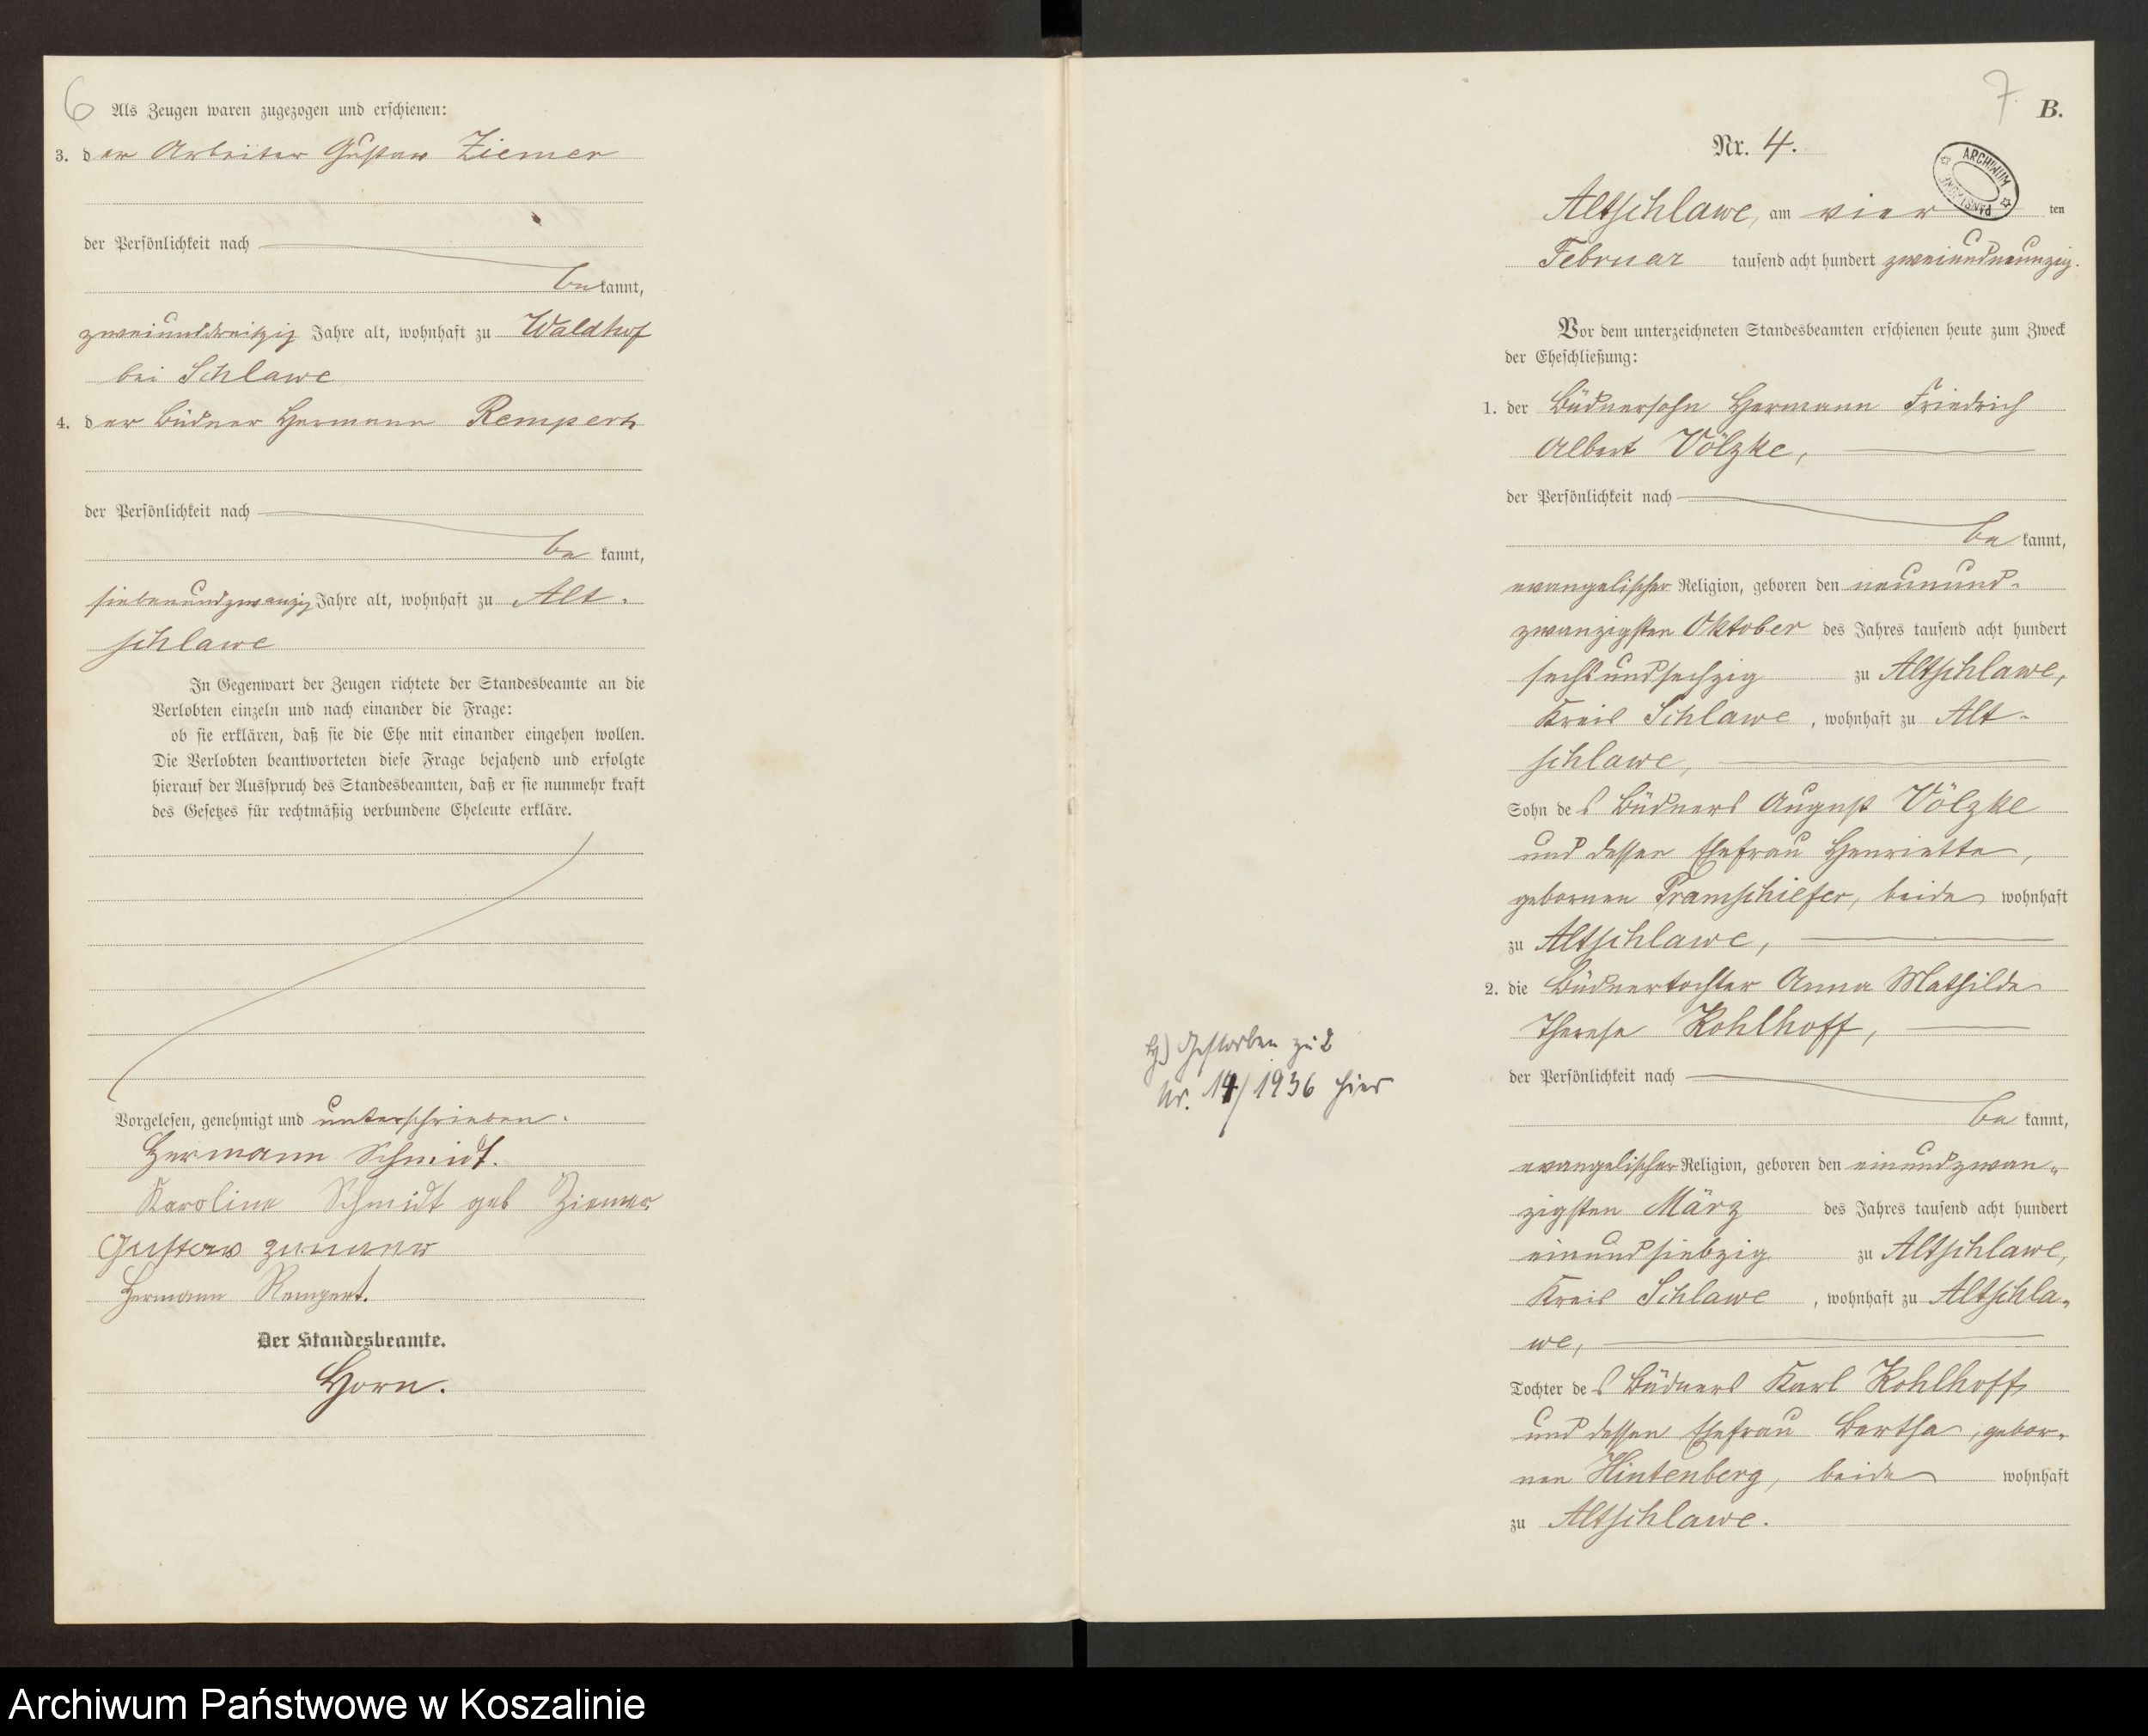 6
Als Zeugen waren zugezogen und erschienen:
3. der Arbeiter Gustav Ziemer
der Persönlichkeit nach
bekannt,
zweiunddreißig Jahre alt, wohnhaft zu Waldhof
bei Schlawe
4. der Büdner Hermann Rempert
der Persönlichkeit nach
bekannt,
siebenundzwanzig Jahre alt, wohnhaft zu Alt-
schlawe
In Gegenwart der Zeugen richtete der Standesbeamte an die
Verlobten einzeln und nach einander die Frage:
ob sie erklären, daß sie die Ehe mit einander eingehen wollen.
Die Verlobten beantworteten diese Frage bejahend und erfolgte
hierauf der Ausspruch des Standesbeamten, daß er sie nunmehr kraft
des Gesetzes für rechtmäßig verbundene Eheleute erkläre.
Vorgelesen, genehmigt und unterschrieben.
Hermann Schmidt.
Karoline Schmidt geb Ziemer
Gustav Ziemer
Hermann Rempert.
Der Standesbeamte.
Horn.
7.
B.
Nr. 4.
ARCHIWUM PAŃSTWOWE
Altschlawe, am vier ten
Februar tausend acht hundert zweiundneunzig.
Vor dem unterzeichneten Standesbeamten erschienen heute zum Zweck
der Eheschließung:
1. der Büdnersohn Hermann Friedrich
Albert Völzke,
der Persönlichkeit nach
bekannt,
evangelischer Religion, geboren den neunund-
zwanzigsten Oktober des Jahres tausend acht hundert
sechsundsechzig zu Altschlawe,
Kreis Schlawe, wohnhaft zu Alt-
schlawe,
Sohn des Büdners August Völzke
und dessen Ehefrau Henriette,
gebornen Pramschiefer, beide wohnhaft
zu Altschlawe,
2. die Büdnertochter Anna Mathilde
Therese Kohlhoff,
der Persönlichkeit nach
bekannt,
evangelischer Religion, geboren den einundzwan-
zigsten März des Jahres tausend acht hundert
einundsiebzig zu Altschlawe,
Kreis Schlawe, wohnhaft zu Altschla-
we,
Tochter des Büdners Karl Kohlhoff
und dessen Ehefrau Bertha, gebor-
nen Hintenberg, beide wohnhaft
zu Altschlawe.
Gestorben zu 2
Nr. 14/1936 hier
Archiwum Państwowe w Koszalinie